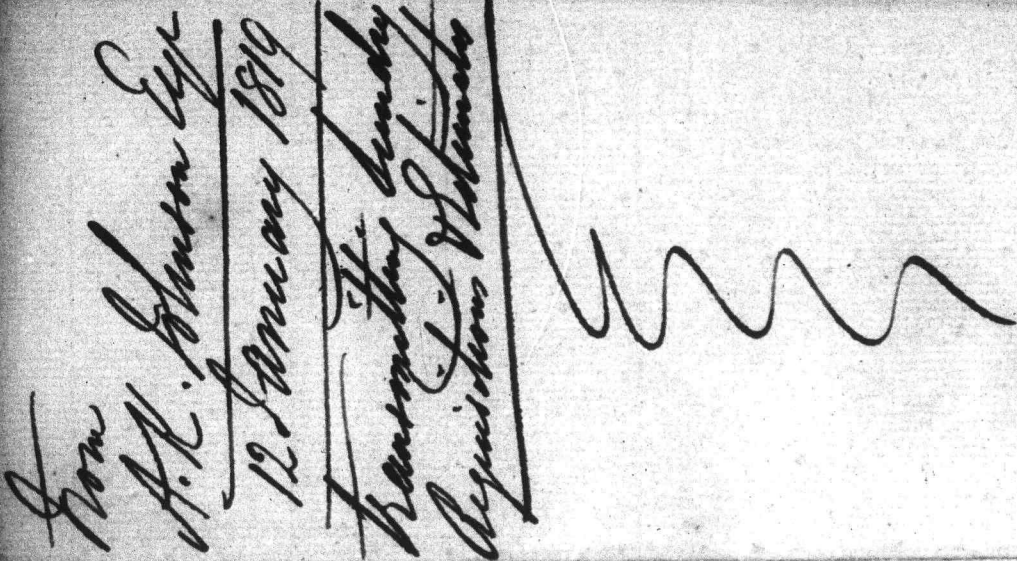 From
A. K. Johnson Esqr
12 January 1819
Transmitting Sundry
Requisitions & Estimates